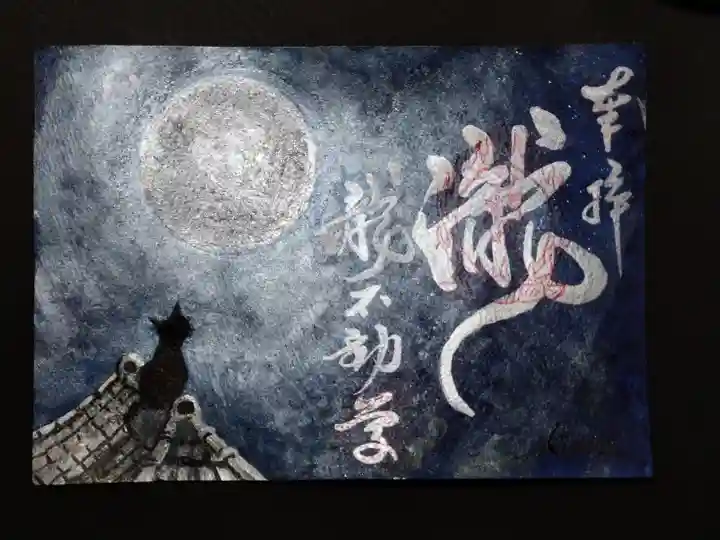 奉拝
瀧
龍不動尊